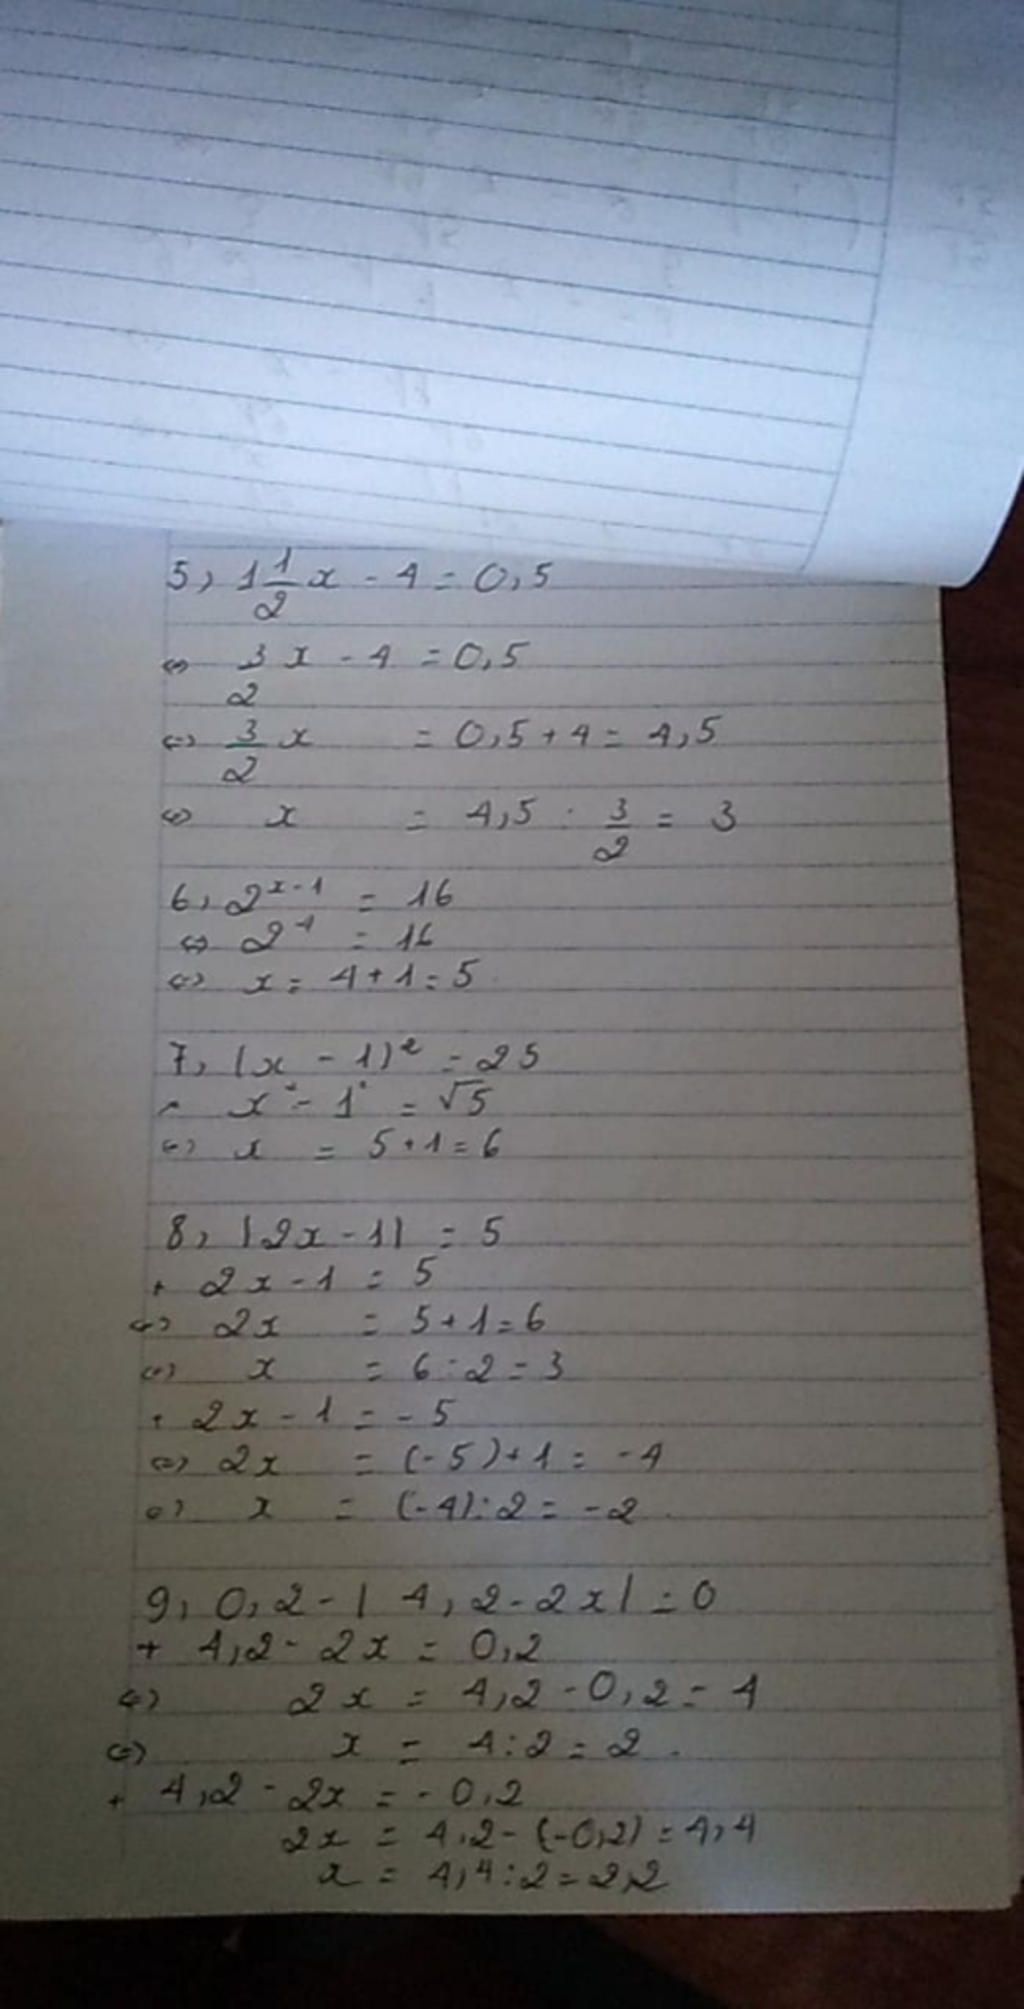 5, 1 1/2 x - 4 = 0,5
<=> 3/2 x - 4 = 0,5
<=> 3/2 x = 0,5 + 4 = 4,5
<=> x = 4,5 : 3/2 = 3
6, 2^{x-1} = 16
<=> 2^4 = 16
<=> x = 4 + 1 = 5
7, (x - 1)^2 = 25
x - 1 = √5
<=> x = 5 + 1 = 6
8, |2x - 1| = 5
+ 2x - 1 = 5
<=> 2x = 5 + 1 = 6
<=> x = 6 : 2 = 3
+ 2x - 1 = - 5
<=> 2x = (-5) + 1 = -4
<=> x = (-4) : 2 = -2
9, 0,2 - | 4,2 - 2x| = 0
+ 4,2 - 2x = 0,2
<=> 2x = 4,2 - 0,2 = 4
<=> x = 4 : 2 = 2
+ 4,2 - 2x = - 0,2
2x = 4,2 - (-0,2) = 4,4
x = 4,4 : 2 = 2,2